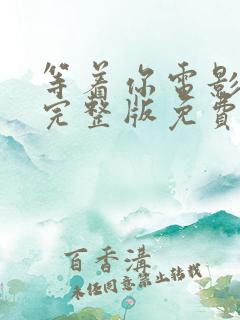 等着你电影
完整版免費
百香溝
未经同意禁止转载